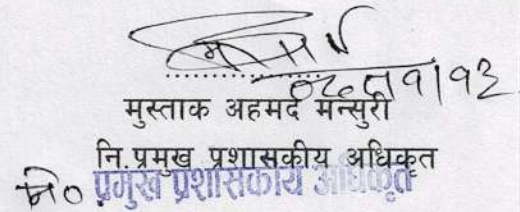 मुस्ताक अहमद मन्सुरी
नि.प्रमुख प्रशासकीय अधिकृत
नि० प्रमुख प्रशासकीय अधिकृत